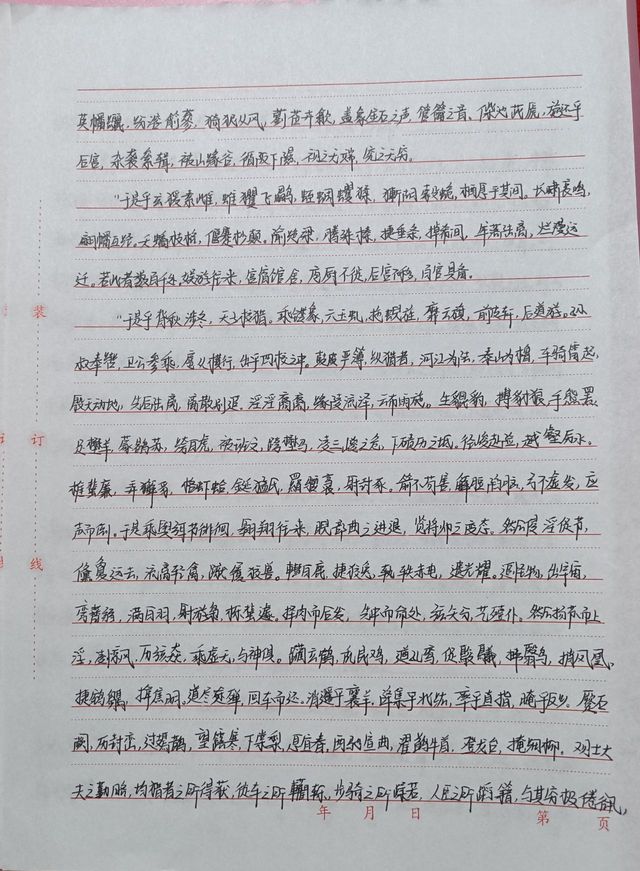 英幡纚,纷溶萷蔘,猗狔从风,藰莅卉歙,盖象金石之声,管籥之音。偨池茈虒,旋还乎
后宫,杂袭絫辑,被山缘谷,循阪下隰,视之无端,究之无穷。
"于是乎玄猨素雌,蜼玃飞鸓,蛭蜩蠼猱,獑胡豰蛫,栖息乎其间。长啸哀鸣,
翩幡互经。夭蟜枝格,偃蹇杪颠。隃绝梁,腾殊榛,捷垂条,掉希间,牢落陆离,烂漫远
迁。若此者数百千处。娱游往来,宫宿馆舍,庖厨不徙,后宫不移,百官具备。
"于是乎背秋涉冬,天子校猎。乘镂象,六玉虬,拖蜺旌,靡云旗,前皮轩,后道游。孙
叔奉辔,卫公参乘,扈从横行,出乎四校之中。鼓严簿,纵猎者,河江为阹,泰山为橹,车骑雷起,
殷天动地,先后陆离,离散别追,淫淫裔裔,缘陵流泽,云布雨施。生貔豹,搏豺狼,手熊罴,
足壄羊,蒙鹖苏,绔白虎,被班文,跨壄马,凌三嵕之危,下碛历之坻。径峻赴险,越壑厉水。
椎蜚廉,弄獬豸,格虾蛤,鋋猛氏,羂騕褭,射封豕。箭不苟害,解脰陷脑,弓不虚发,应
声而倒。于是乘舆弭节徘徊,翱翔往来,睨部曲之进退,览将帅之变态。然后侵淫促节,
儵夐远去,流离轻禽,蹴履狡兽。轊白鹿,捷狡兔,轶赤电,遗光耀。追怪物,出宇宙,
弯蕃弱,满白羽,射游枭,栎蜚遽。择肉而后发,先中而命处,弦矢分,艺殪仆。然后扬节而上
浮,凌惊风,历骇猋,乘虚无,与神俱。躏玄鹤,乱昆鸡,遒孔鸾,促鵔鸃,拂翳鸟,捎凤凰,
捷鹓鶵,揜焦明。道尽途殚,回车而还。消遥乎襄羊,降集乎北纮,率乎直指,晻乎反乡。蹷石
阙,历封峦,过鳷鹊,望露寒,下棠梨,息宜春,西驰宣曲,濯鹢牛首,登龙台,掩细柳。观士大
夫之勤略,均猎者之所得获,徒车之所轥轹,步骑之所蹂若,人臣之所蹈籍,与其穷极倦谻,
装
订
线
年 月 日 第 页